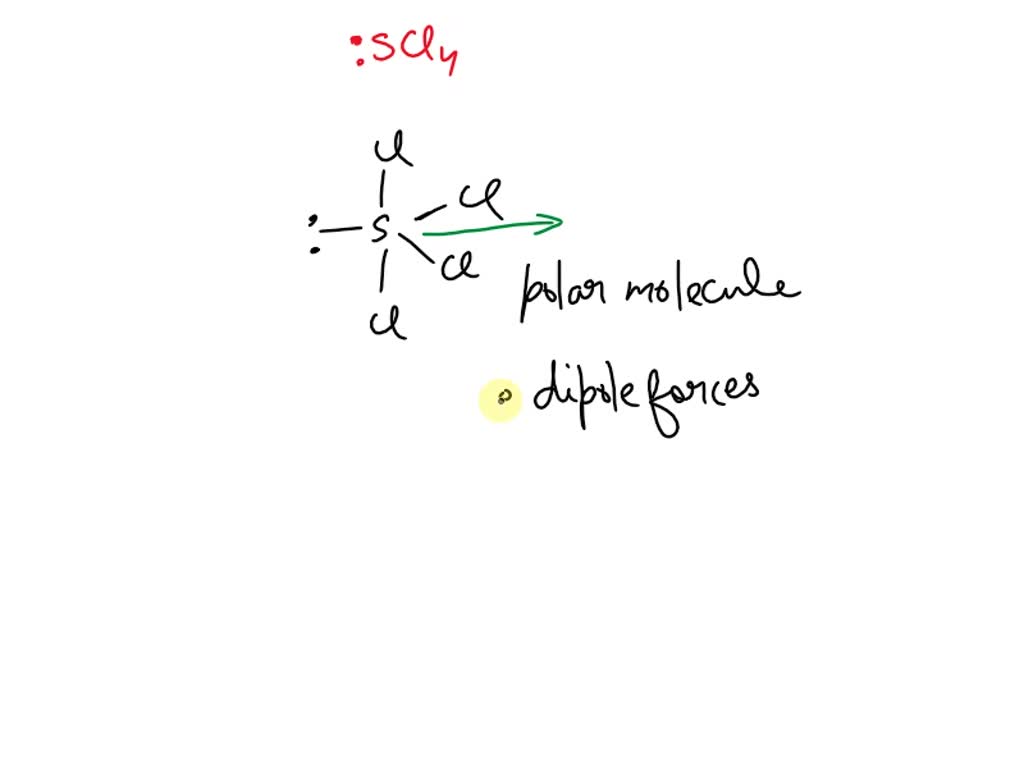 :SCl4
Cl
Cl
:—S
Cl
Cl
polar molecule
dipole forces